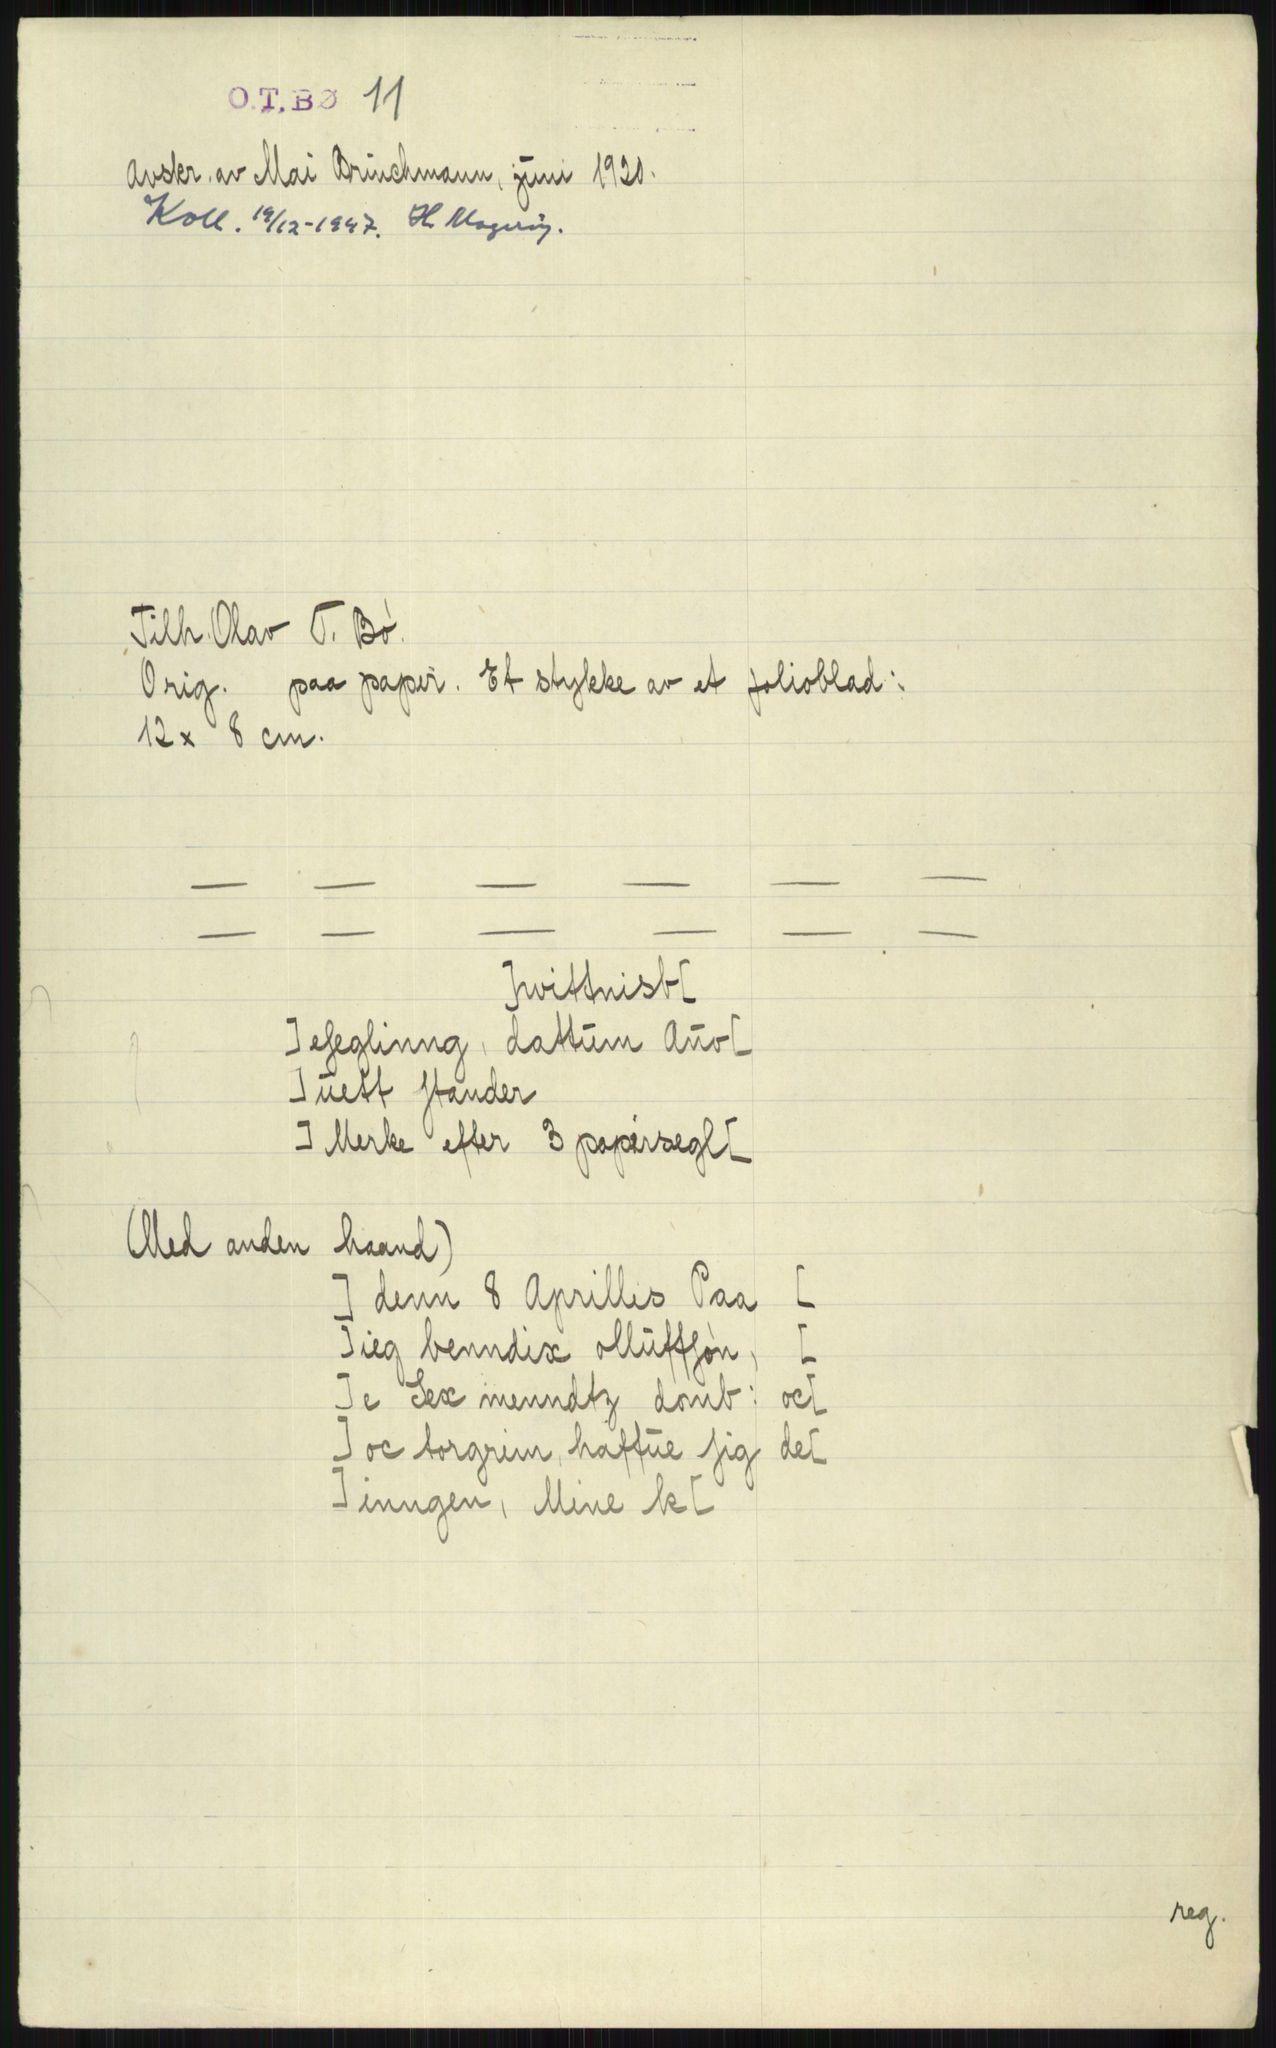 O.T.BØ 11
Avskr. av Mai Brinchmann, juni 1920.
Koll. 19/12-1947. H. Magerøy.
Tilh. Olav T. Bø.
Orig. paa papir. Et stykke av et folioblad:
12 x 8 cm.
— — — — — —
— — — — — —
]wittnisb[
]eseglinng, dattum Año[
]uest stander
] Merke efter 3 papirsegl[
(Med anden haand)
] denn 8 Aprilles Paa [
]ieg benndix olluffsøn, [
]e Sex menndtz domb: oc[
] oc torgrim, haffue sig de[
]inngen, Mine k[
reg.